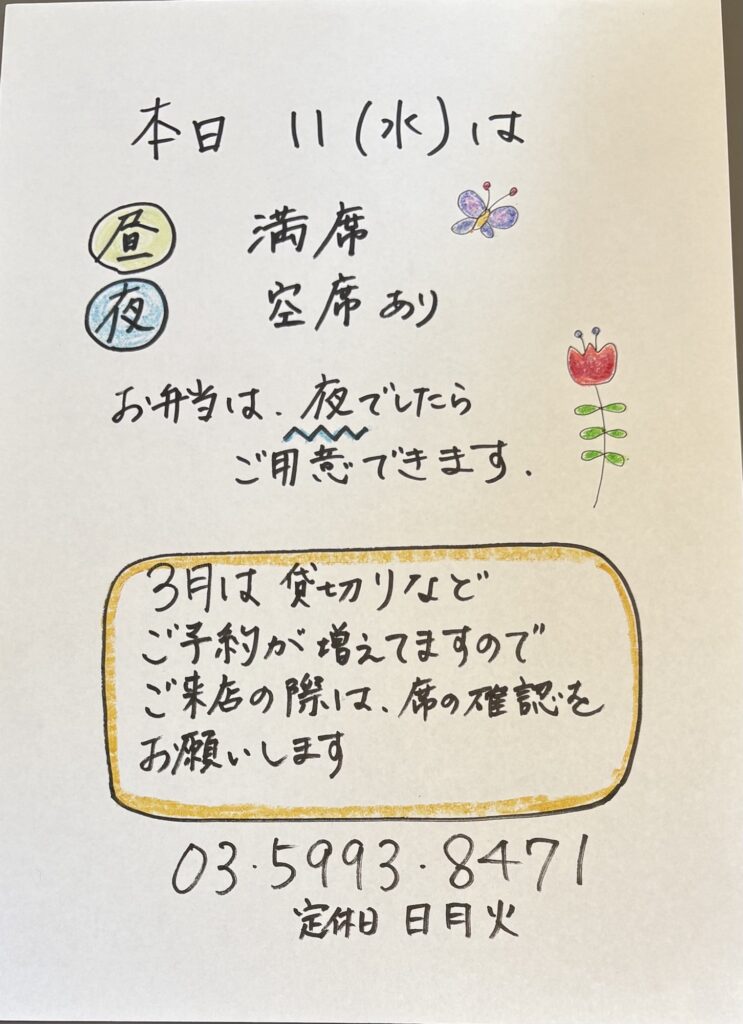 本日 11(水)は
昼 満席
夜 空席あり
お弁当は、夜でしたら
ご用意できます.
3月は貸切りなど
ご予約が増えてますので
ご来店の際は、席の確認を
お願いします
03.5993.8471
定休日 日月火